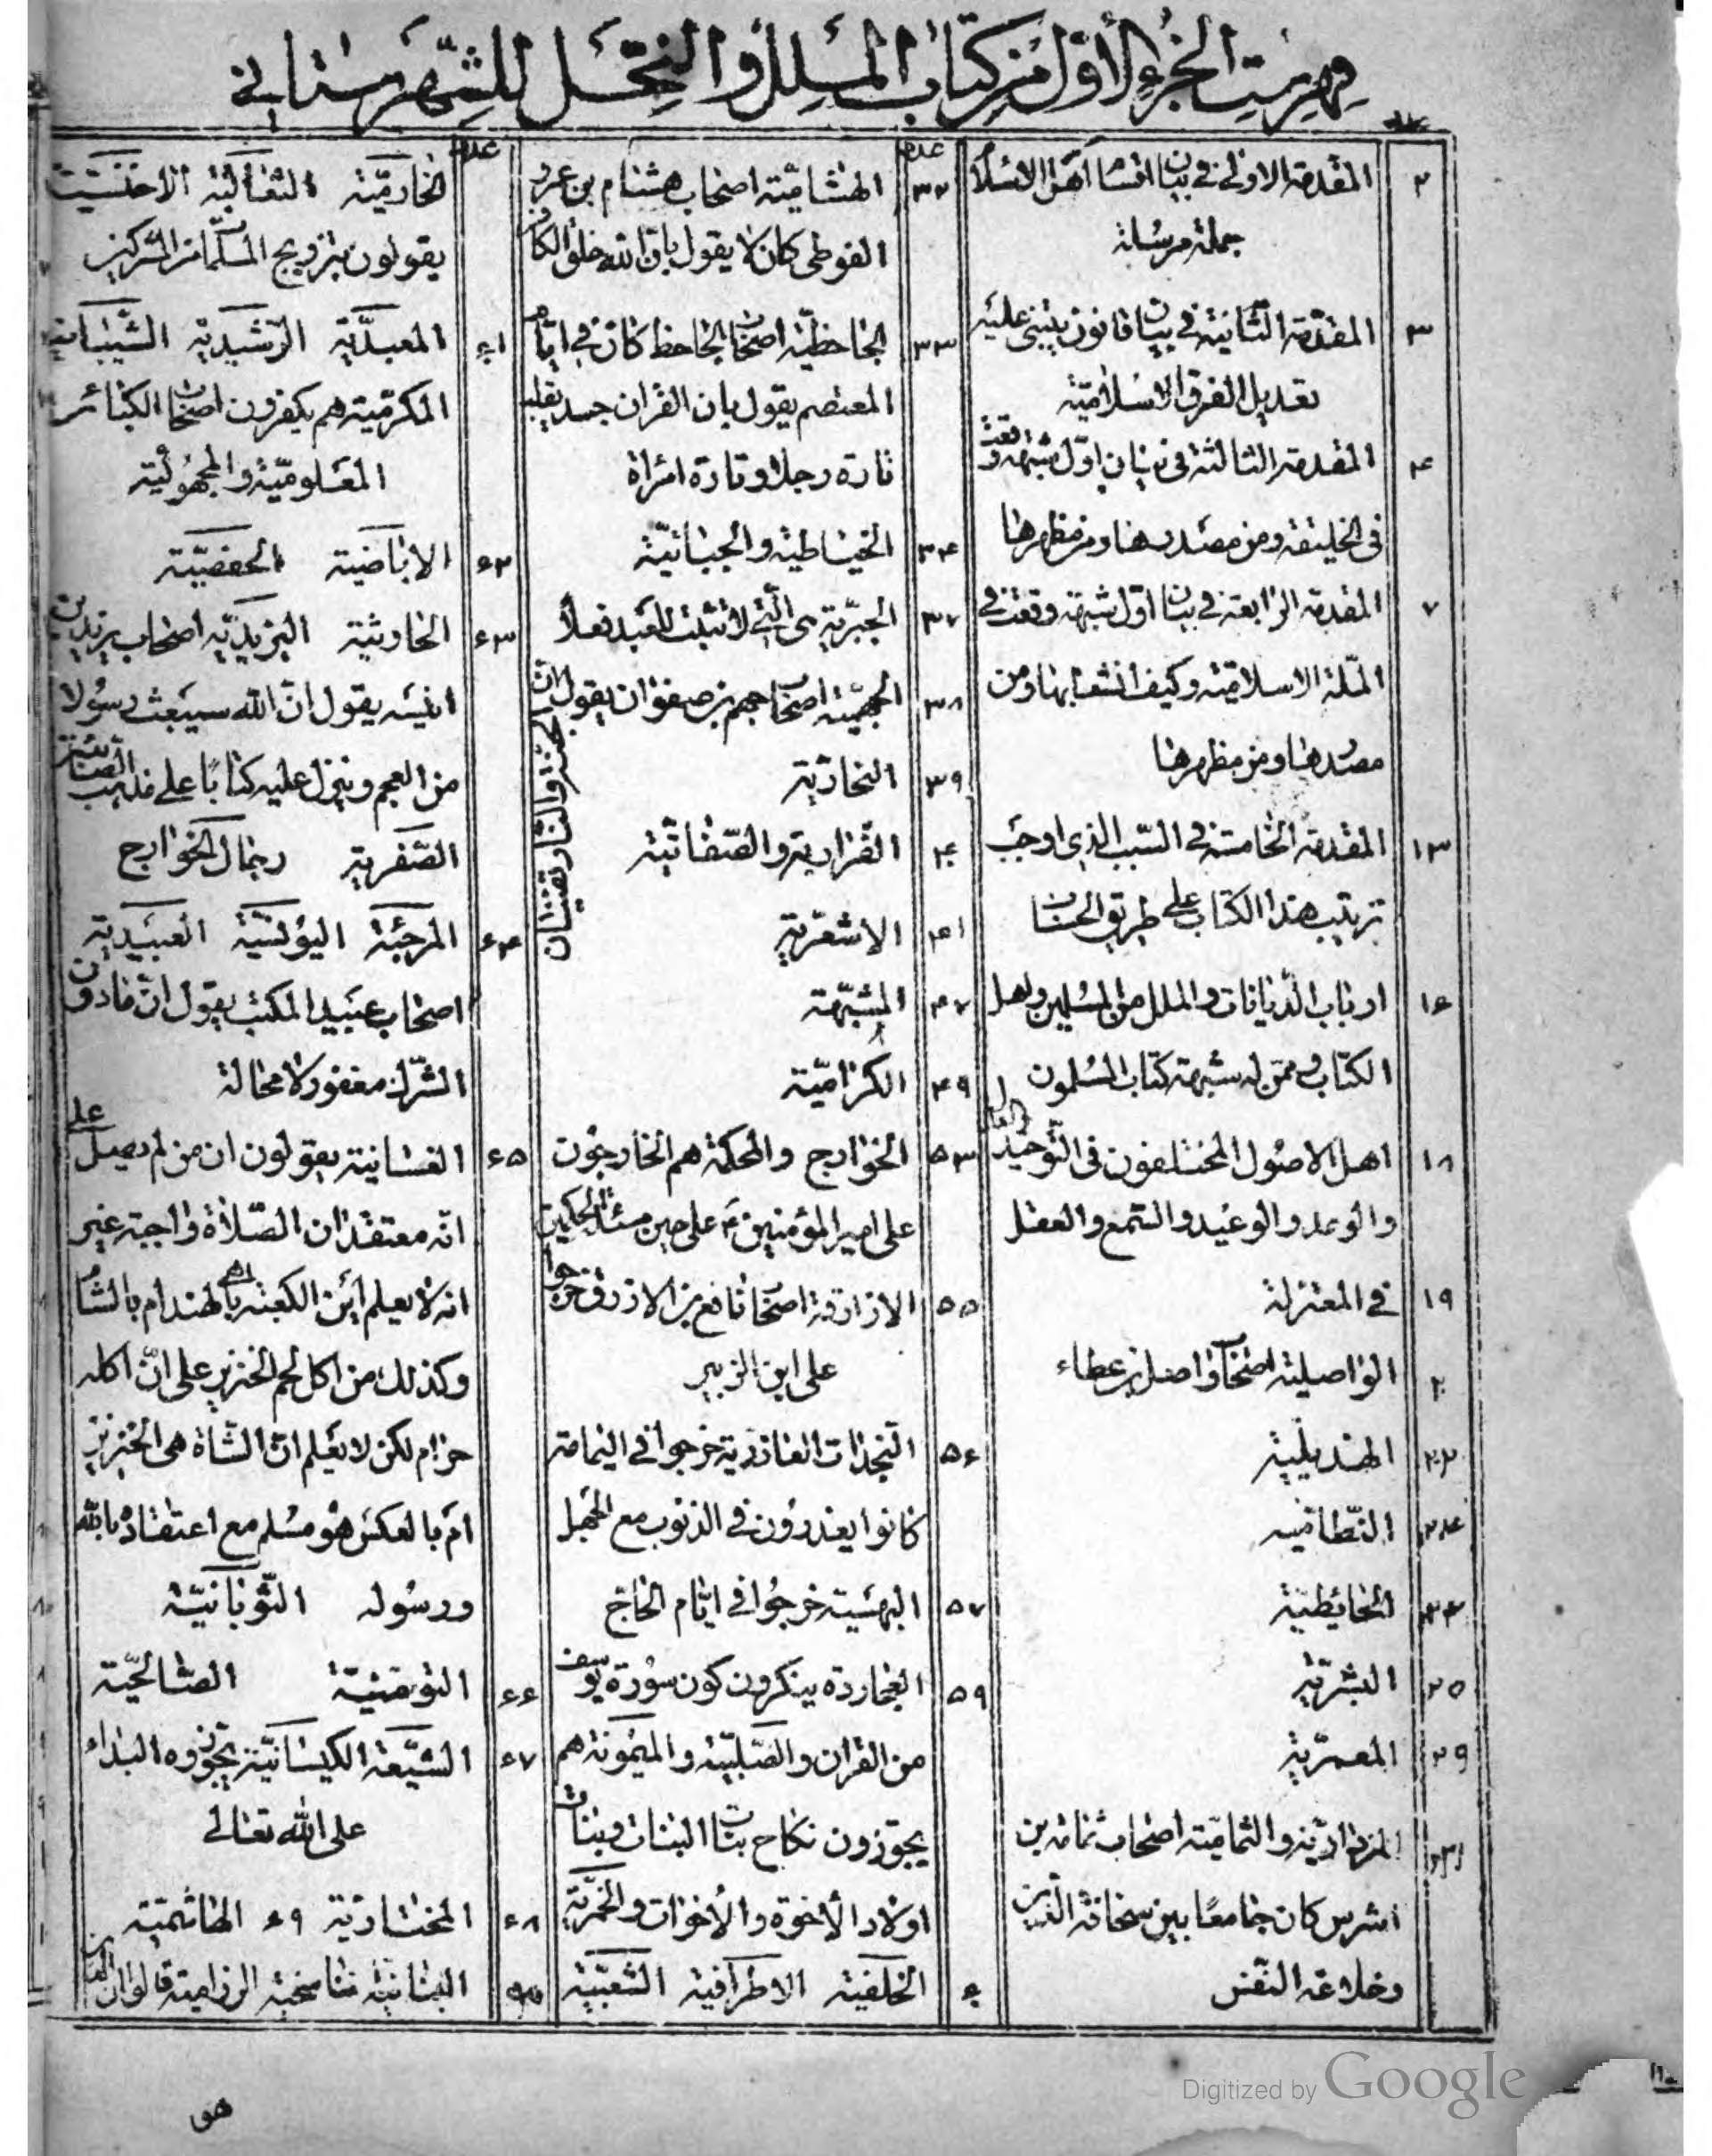 فهرست الجزء الأول من كتاب الملل والنحل للشهرستاني
عدد
٢ المقدمة الاولى في بيان اقسام اهل الاسلام
جملة مرسلة
٣ المقدمة الثانية في بيان قانون يبتنى عليه
تعديل الفرق الاسلامية
۴ المقدمة الثالثة في بيان اوّل شبهة وقعت
فى الخليقة ومن مصدرها ومن مظهرها
٧ المقدمة الرابعة في بيان اوّل شبهة وقعت في
الملّة الاسلامية وكيف انشعابها ومن
مصدرها ومن مظهرها
١٣ المقدمة الخامسة في السّبب الذي اوجب
ترتيب هذا الكتاب على طريق الحساب
١۶ ارباب الدّيانات والملل من المسلمين واهل
الكتاب وممّن له شبهة كتاب المسلمون
١٨ اهل الاصول المختلفون فى التّوحيد والعدل
والوعد والوعيد والسّمع والعقل
١٩ في المعتزلة
٢٠ الواصلية اصحاب واصل بن عطاء
٢٢ الهذيلية
٢۴ النّظامية
٢۴ الحايطية
٢٥ البشريّة
٢٩ المعمّرية
٣١ المزدارية والثمامية اصحاب ثمامة بن
اشرس كان جامعًا بين سخافة الدّين
وخلاعة النّفس
عدد
٣٢ الهشاميّة اصحاب هشام بن عمرو
الفوطى كان لا يقول بانّ الله خلق الكافر
٣٣ الجاحظيّة اصحاب الجاحظ كان في ايّام
المعتصم يقول بان القران جسد يقلب
تارة رجلا وتارة امرأة
٣۴ الخياطية والجبائيّة
٣٧ الجبّرية هى الّتي لا تثبت للعبد فعلاً
٣٨ الجهميّة اصحاب جهم بن صفوان يقول انّ
الجنّة والنّار تفنيان
٣٩ النجاريّة
۴٠ الضّرارية والصّفاتيّة
۴١ الاشعريّة
۴٧ المشبّهة
۴٩ الكرّاميّة
٥٣ الخوارج والمحكمة هم الخارجون
على امير المؤمنين على حين مسئلة الحكمين
٥٥ الازارقة اصحاب نافع بن الازرق خرجوا
على ابن الزبير
٥۶ النّجدات العاذرية خرجوا في اليمامة
كانوا يعذرون في الذنوب مع الجهل
٥٧ البهسيّة خرجوا في ايّام الحاج
٥٩ العجاردة ينكرون كون سورة يوسف
من القران والصّلتيّة والميمونة هم
يجوّزون نكاح بنات البنات وبنات
اولاد الأخوة والأخوات والحمزيّة
۶٠ الخلفيّة الاطرافية الشعيبيّة
عدد
الخارميّة الثعالبة الاخنسيّة
يقولون بتزويج المسلمات من المشركين
۶١ المعبديّة الرّشيديّة الشّيبانية
المكرميّة هم يكفرون اصحاب الكبائر
المعلوميّة والمجهوليّة
۶٢ الاباضية الحفصيّة
۶٣ الحارثية اليزيديّة اصحاب يزيد بن
انيسه يقول انّ الله سيبعث رسولا
من العجم وينزل عليه كتابًا على مذهب الصّابئين
الصّفرية رجال الخوارج
۶۴ المرجئة اليونسيّة العبيديّة
اصحاب عبيد المكتب يقول انّ ما دون
الشّرك مغفور لا محالة
۶٥ الغسانية يقولون ان من لم يصل على
انّه معتقد ان الصّلاة واجبة غير
انه لا يعلم أين الكعبة بالهند ام بالشام
وكذلك من اكل لحم الخنزير على انّ اكله
حرام لكن لا يعلم انّ الشّاة هى الخنزير
ام بالعكس هو مسلم مع اعتقاده بالله
ورسوله الثّوبانيّة
۶۶ التّومنيّة الصّالحيّة
۶٧ الشّيعة الكيسانيّة يجوّزوه البداء
على الله تعالى
۶٨ المختاريّة ۶٩ الهاشميّة
البنانيّة تناسخية الرزامية قالوا ان
هى
Digitized by Google